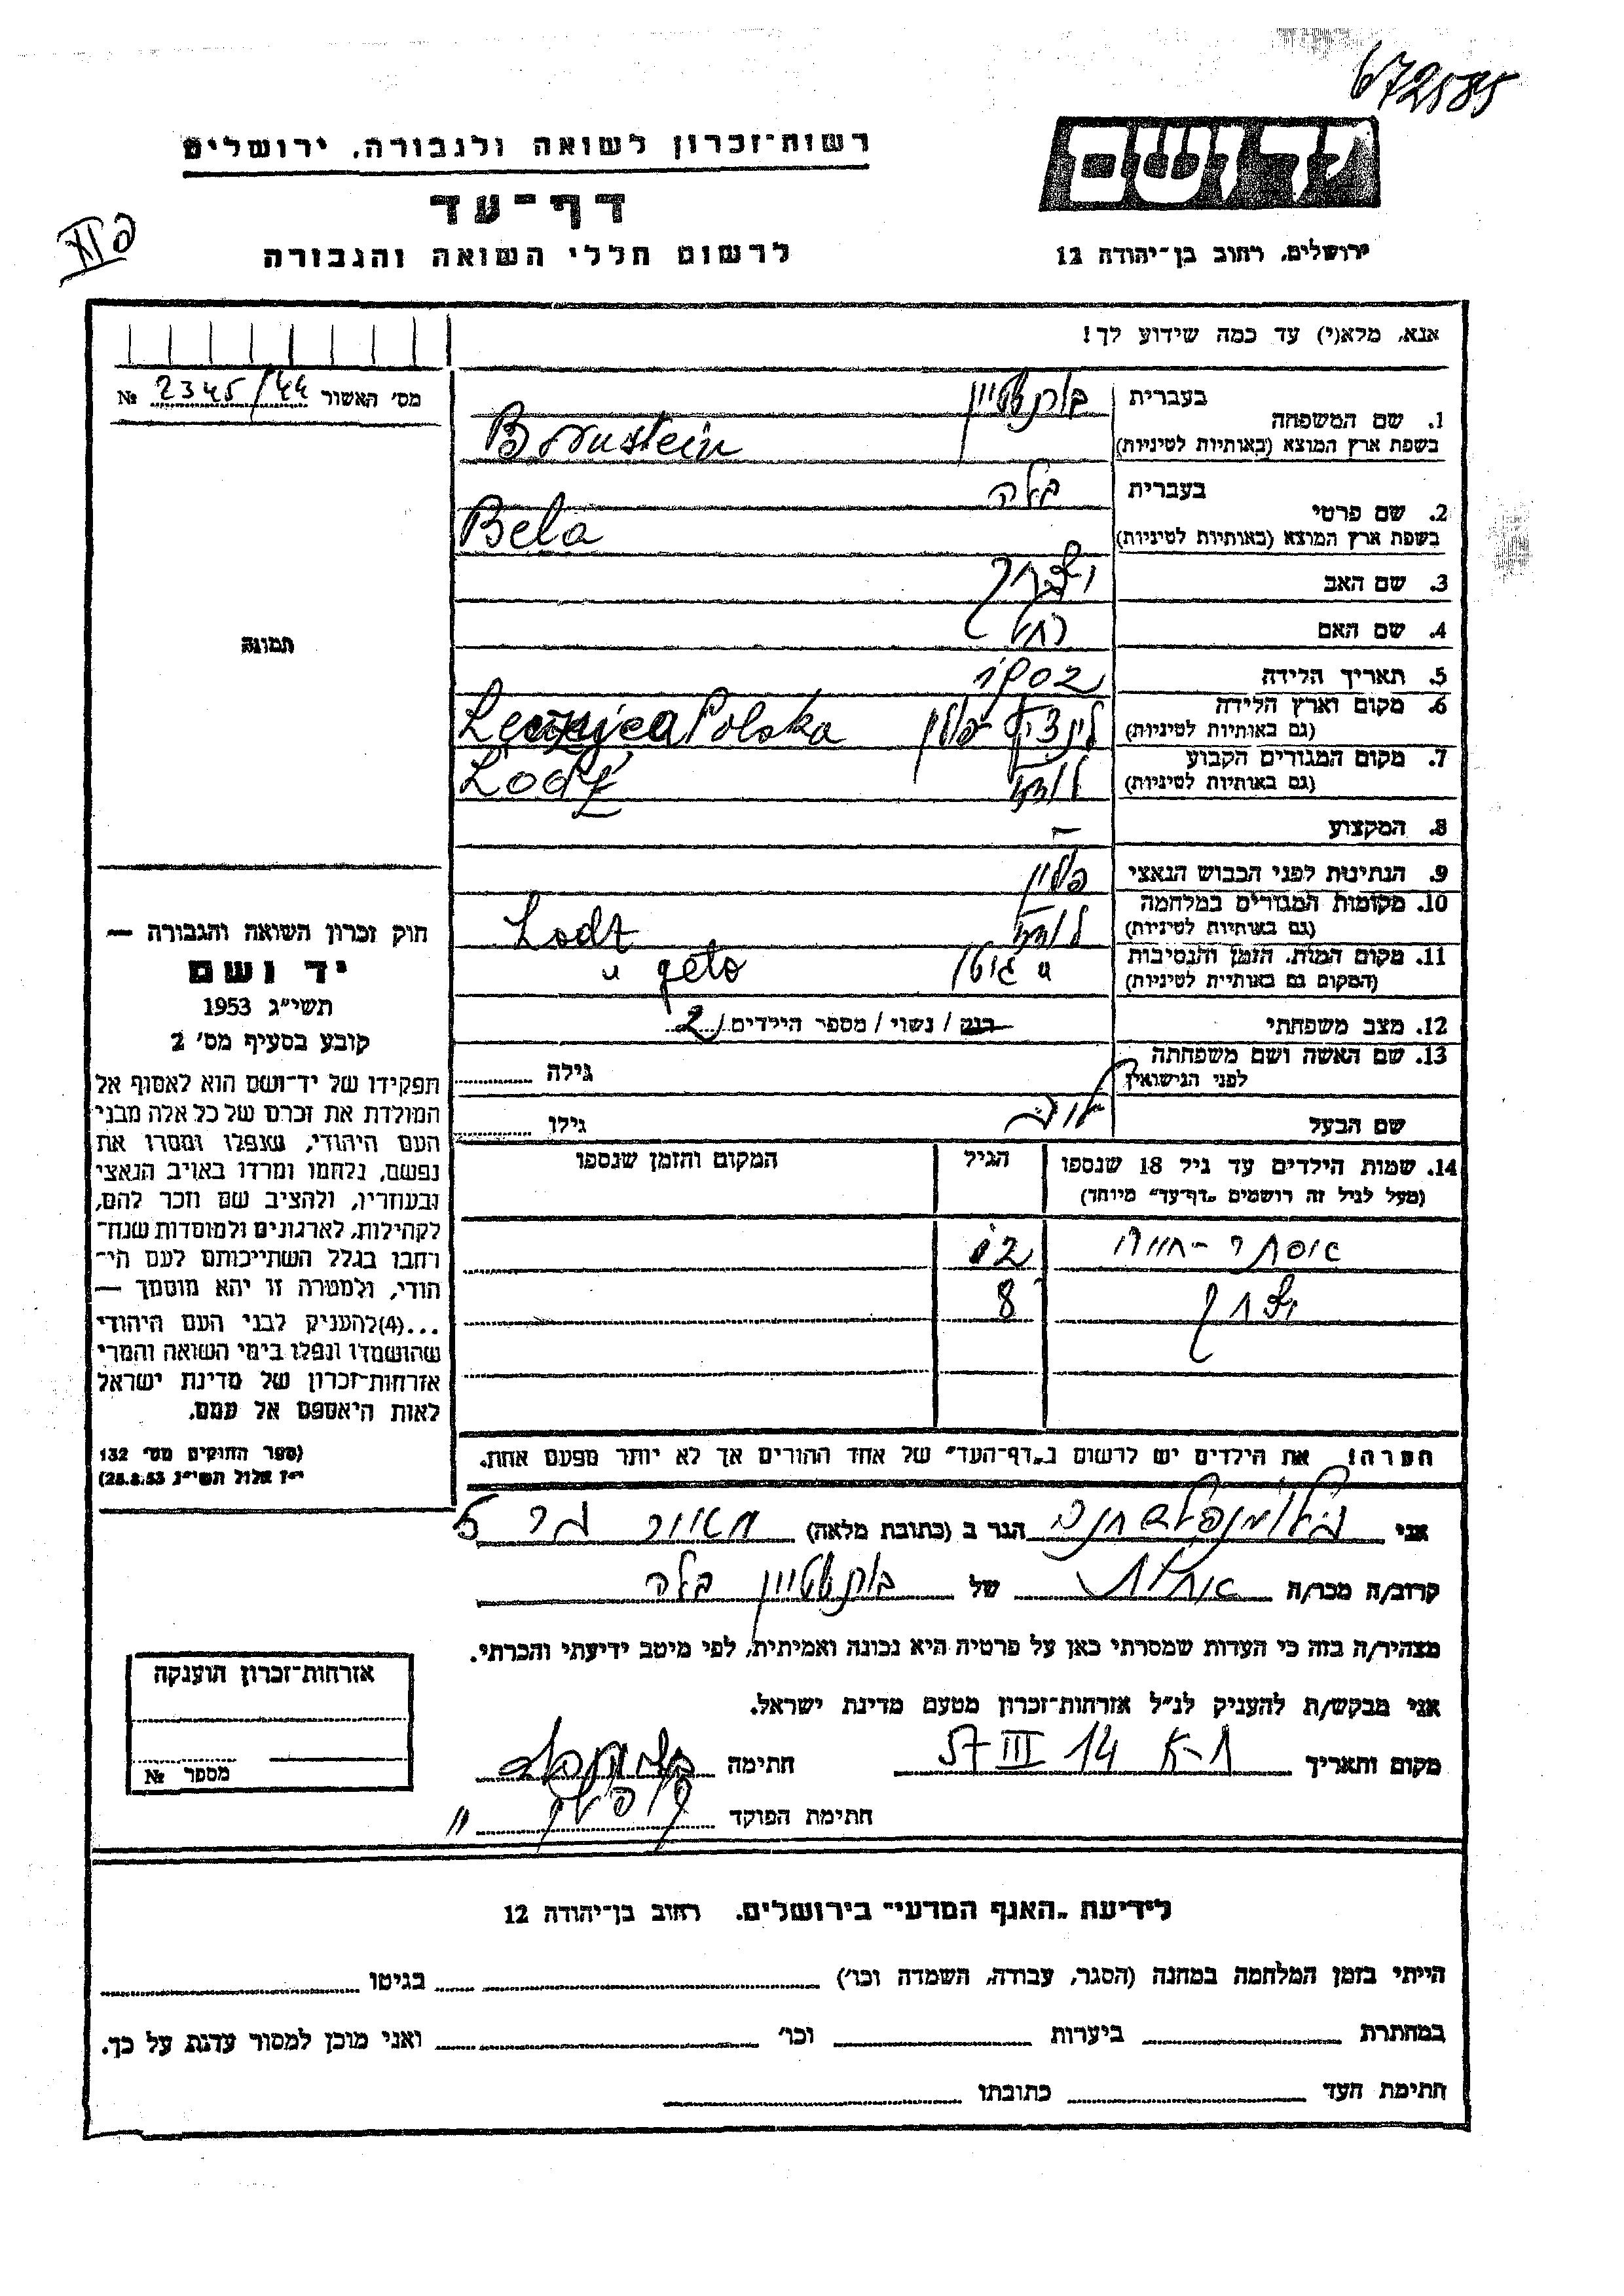 672585
רשות־זכרון לשואה ולגבורה. ירושלים
דף־עד
לרשום חללי השואה והגבורה
יד ושם
ירושלים, רחוב בן־יהודה 12
אנא, מלא(י) עד כמה שידוע לך!
מס׳ האשור 2345/44 №
תמונה
בעברית בורנשטיין
1. שם המשפחה
בשפת ארץ המוצא (באותיות לטיניות) Bornstein
בעברית בלה
2. שם פרטי
בשפת ארץ המוצא (באותיות לטיניות) Bela
3. שם האב
4. שם האם רחל
5. תאריך הלידה 1902
6. מקום וארץ הלידה
(גם באותיות לטיניות) פולין Polska
7. מקום המגורים הקבוע
(גם באותיות לטיניות) לודז Lodź
8. המקצוע —
9. הנתינות לפני הכבוש הנאצי פולין
10. מקומות המגורים במלחמה
(גם באותיות לטיניות) לודז Lodz
11. מקום המות, הזמן והנסיבות
(המקום גם באותיות לטיניות) " גיטו " geto
12. מצב משפחתי רווק / נשוי / מספר הילדים 2
13. שם האשה ושם משפחתה
לפני הנישואין גילה
שם הבעל גילו
14. שמות הילדים עד גיל 18 שנספו הגיל המקום והזמן שנספו
(מעל לגיל זה רושמים „דף־עד״ מיוחד)
אסתר - חוה 12
יצחק 8
הערה! את הילדים יש לרשום ב„דף־העד״ של אחד ההורים אך לא יותר מפעם אחת.
חוק זכרון השואה והגבורה —
יד ושם
תשי״ג 1953
קובע בסעיף מס׳ 2
תפקידו של יד־ושם הוא לאסוף אל
המולדת את זכרם של כל אלה מבני
העם היהודי, שנפלו ומסרו את
נפשם, נלחמו ומרדו באויב הנאצי
ובעוזריו, ולהציב שם וזכר להם,
לקהילות, לארגונים ולמוסדות שנח־
רבו בגלל השתייכותם לעם הי־
הודי, ולמטרה זו יהא מוסמך —
...(4)להעניק לבני העם היהודי
שהושמדו ונפלו בימי השואה והמרי
אזרחות־זכרון של מדינת ישראל
לאות היאספם אל עמם.
(ספר החוקים מס׳ 132
י״ז אלול תשי״ג 28.8.53)
אני הגר ב (כתובת מלאה) 5
קרוב/ה מכר/ה אחות של בורנשטיין בלה
מצהיר/ה בזה כי העדות שמסרתי כאן על פרטיה היא נכונה ואמיתית, לפי מיטב ידיעתי והכרתי.
אני מבקש/ת להעניק לנ״ל אזרחות־זכרון מטעם מדינת ישראל.
מקום ותאריך ת-א 14 III 57 חתימה
חתימת הפוקד
אזרחות־זכרון הוענקה
מספר №
לידיעת „האגף המדעי״ בירושלים. רחוב בן־יהודה 12
הייתי בזמן המלחמה במחנה (הסגר, עבודה, השמדה וכו׳) בגיטו
במחתרת ביערות וכו׳ ואני מוכן למסור עדות על כך.
חתימת העד כתובתו